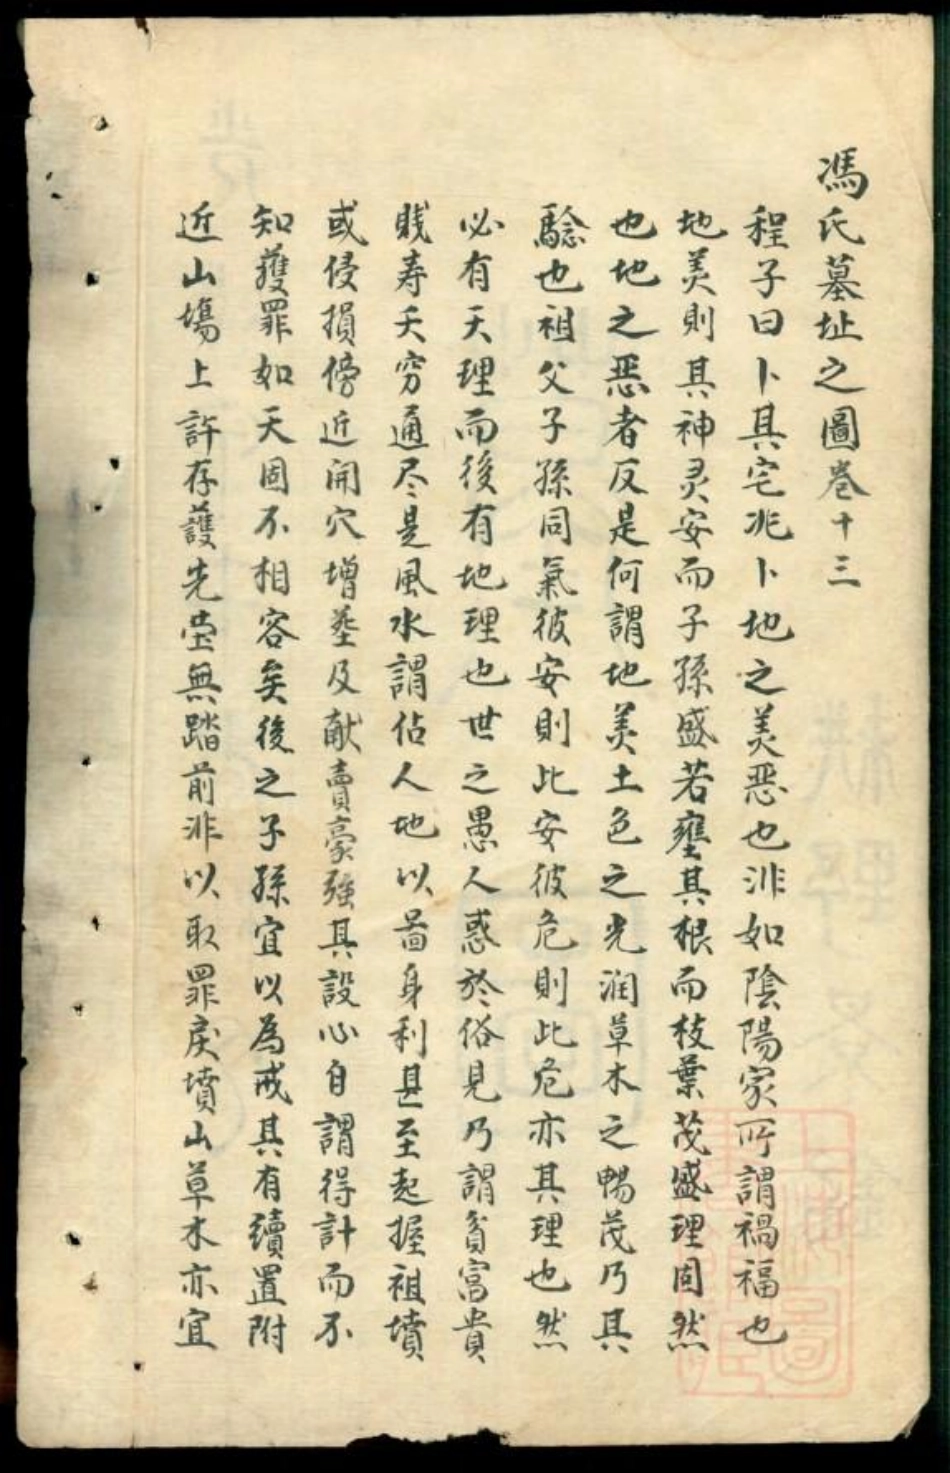 馮氏墓址之圖卷十三
程子曰卜其宅兆卜地之美惡也非如陰陽家所謂禍福也
地美則其神灵安而子孫盛若壅其根而枝葉茂盛理固然
也地之恶者反是何謂地美土色之光润草木之暢茂乃其
驗也祖父子孫同氣彼安則此安彼危則此危亦其理也然
必有天理而後有地理也世之愚人惑於俗見乃謂貧富貴
賎寿夭穷通尽是風水謂佔人地以啚身利甚至起握祖墳
或侵損傍近開穴增塟及献賣豪強其設心自謂得計而不
知獲罪如天固不相容矣後之子孫宜以為戒其有續置附
近山塲上許存護先塋無踏前非以取罪戾墳山草木亦宜